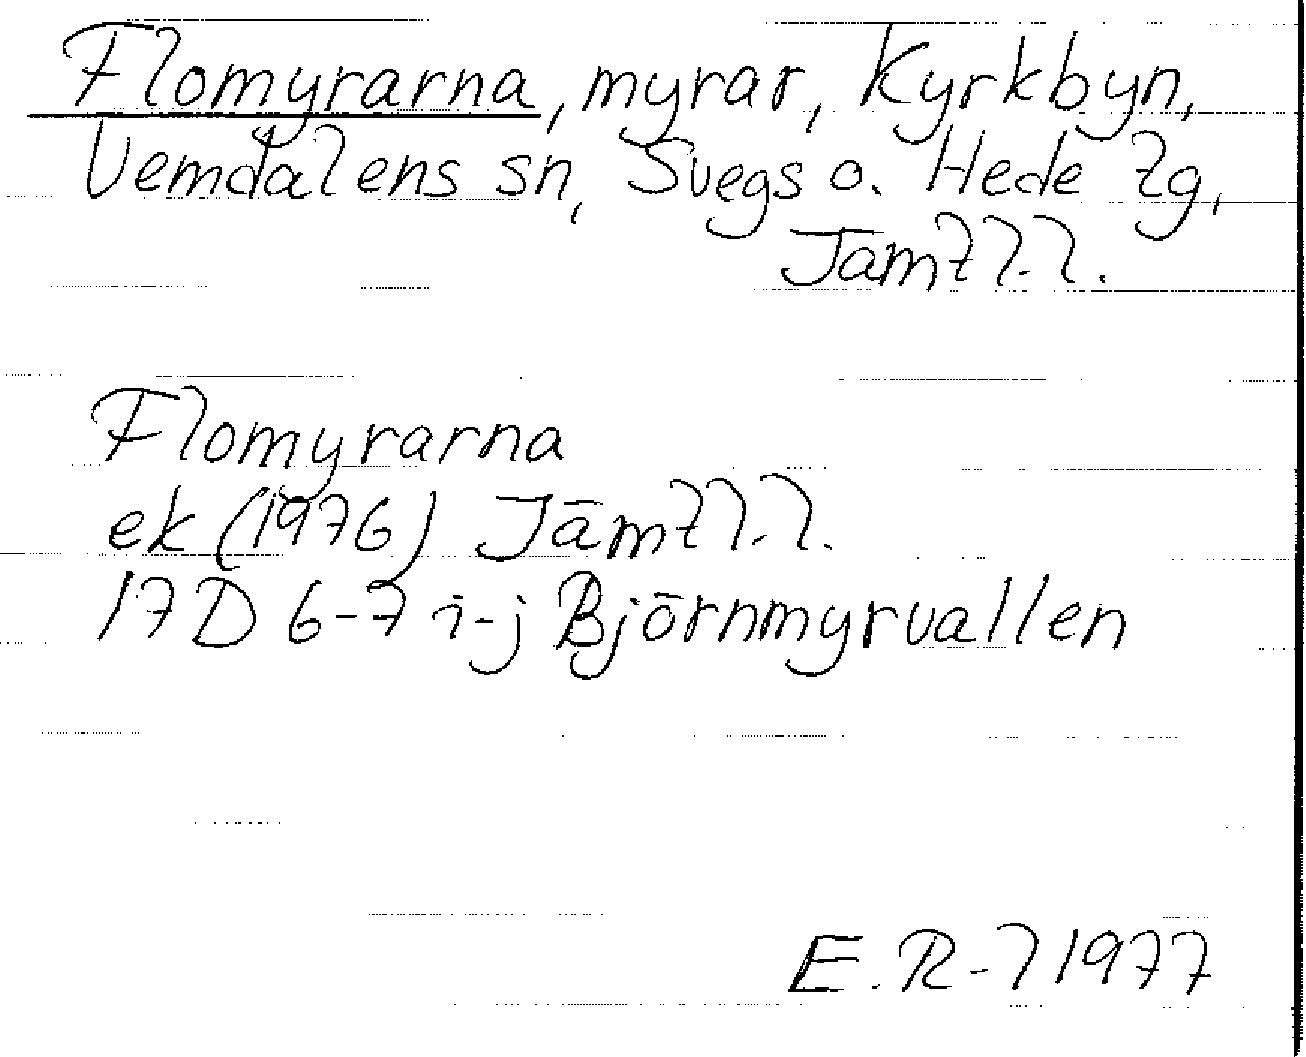 Flomyrarna, myrar, Kyrkbyn,
Vemdalens sn, Svegs o. Hede tg,
Jämtl. l.
Flomyrarna
ek (1976) Jämtl. l.
17D 6-7 i-j Björnmyrvallen
E. R-l 1977